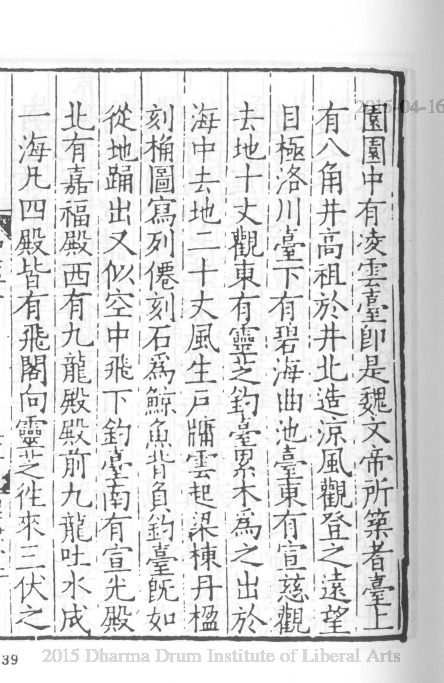 園園中有凌雲臺即是魏文帝所築者臺上
有八角井高祖於井北造涼風觀登之遠望
目極洛川臺下有碧海曲池臺東有宣慈觀
去地十丈觀東有靈芝釣臺累木為之出於
海中去地二十丈風生戶牖雲起梁棟丹楹
刻桷圖寫列僊刻石為鯨魚背負釣臺既如
從地踊出又似空中飛下釣臺南有宣光殿
北有嘉福殿西有九龍殿殿前九龍吐水成
一海凡四殿皆有飛閣向靈芝往來三伏之
2015-04-16
39
2015 Dharma Drum Institute of Liberal Arts